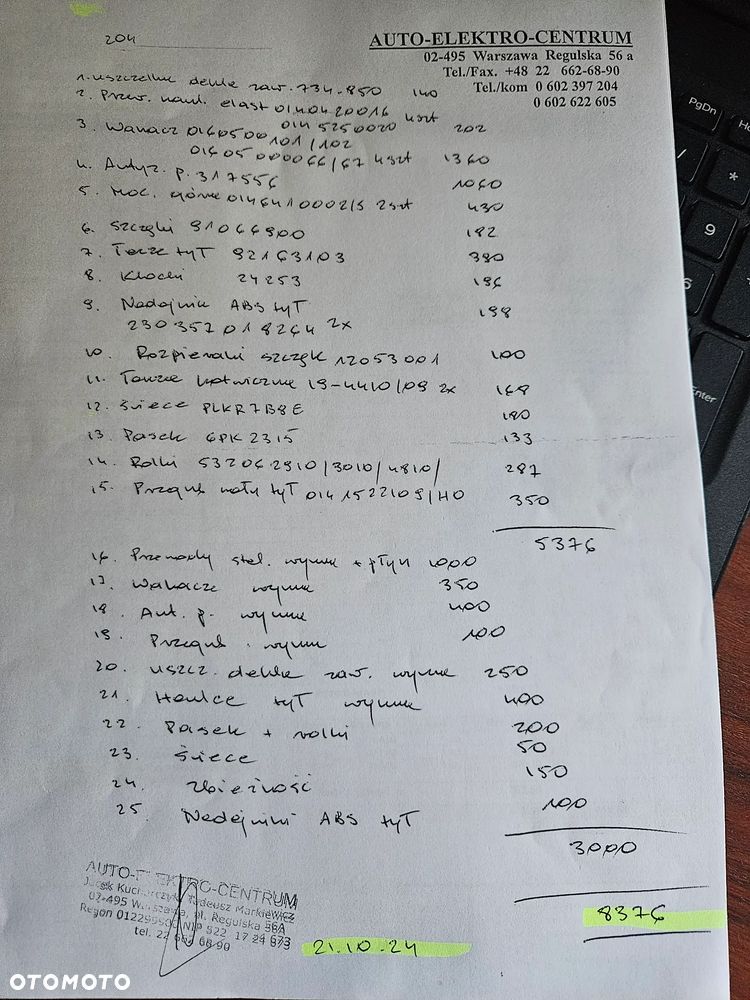 204
AUTO-ELEKTRO-CENTRUM
02-495 Warszawa Regulska 56 a
Tel./Fax. +48 22 662-68-90
Tel./kom 0 602 397 204
0 602 622 605
1. uszczelka dekla zaw. 734-850 140
2. Przew. ham. elast 0140420016
0145250020 4szt 202
3. Wahacz 0160500101/102
01605000066/67 4szt 1360
4. Amtyz. p. 317556 1060
5. Moc. górne 0146410002/S 2szt 430
6. Szczęki 91066900 182
7. Tarcze tyT 92163103 390
8. Klocki 24253 196
9. Nadajnik ABS tyT 198
230357018264 2x
10. Rozpieraki szczęk 12053001 100
11. Tarcze kotwiczne 19-4410/09 2x 168
12. Świece PLKR7B8E 180
13. Pasek 6PK2315 133
14. Rolki 532062910/3010/4810/ 287
15. Przegub nału tyT 0141522109/HO 350
5376
16. Przewody stal. wymk + płyn 1000
17. Wahacze wymk 350
18. Amt. p. wymk 400
19. Przegub. wymk 100
20. uszcz. dekla zaw. wymk 250
21. Hamulce tyT wymk 400
22. Pasek + rolki 200
23. Świece 50
24. Zbieżność 150
25. Nadajniki ABS tyT 100
3000
8376
AUTO-ELEKTRO-CENTRUM
Tadeusz Markiewicz
02-495 Warszawa, ul. Regulska 56A
Regon NIP 522 17 24 673
tel. 22 662 68 90
21.10.24
PgDn
/
*
9
6
Enter
OTOMOTO